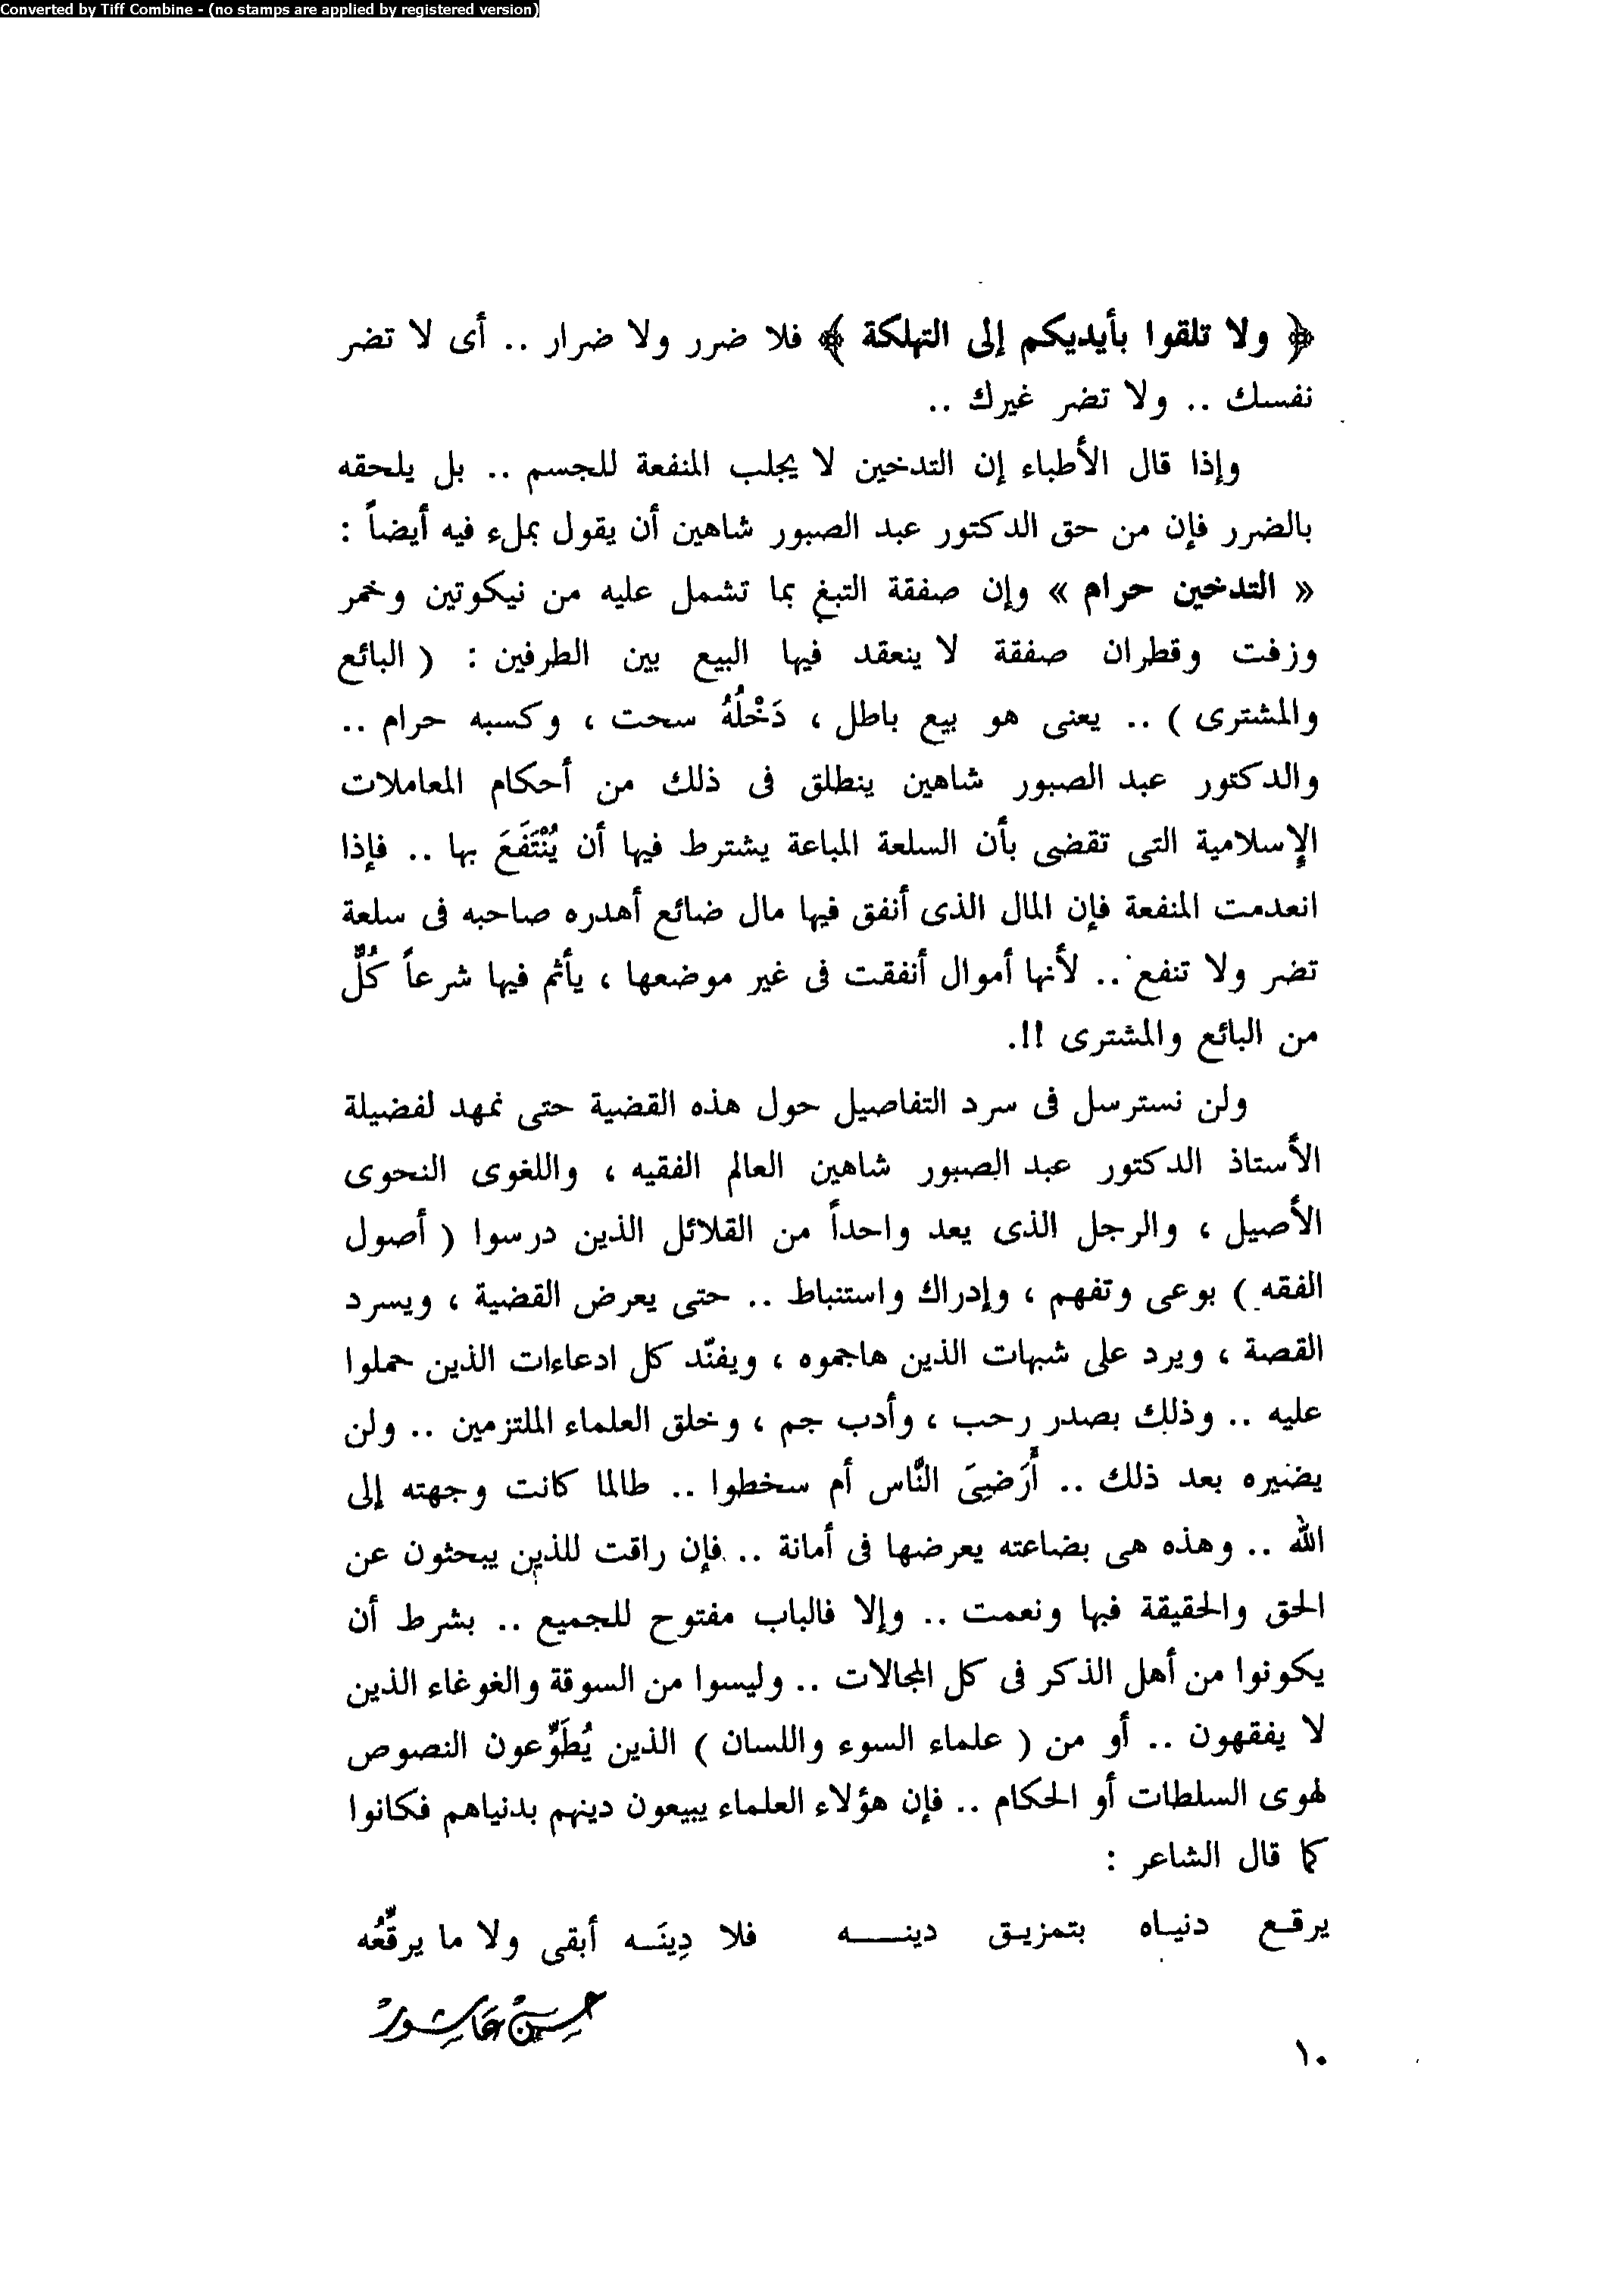 Converted by Tiff Combine - (no stamps are applied by registered version)
﴿ ولا تلقوا بأيديكم إلى التهلكة ﴾ فلا ضرر ولا ضرار .. أى لا تضر
نفسك .. ولا تضر غيرك ..
وإذا قال الأطباء إن التدخين لا يجلب المنفعة للجسم .. بل يلحقه
بالضرر فإن من حق الدكتور عبد الصبور شاهين أن يقول بملء فيه أيضاً :
« التدخين حرام » وإن صفقة التبغ بما تشمل عليه من نيكوتين وخمر
وزفت وقطران صفقة لا ينعقد فيها البيع بين الطرفين : ( البائع
والمشترى ) .. يعنى هو بيع باطل ، دَخْلُهُ سحت ، وكسبه حرام ..
والدكتور عبد الصبور شاهين ينطلق فى ذلك من أحكام المعاملات
الإسلامية التى تقضى بأن السلعة المباعة يشترط فيها أن يُنْتَفَعَ بها .. فإذا
انعدمت المنفعة فإن المال الذى أنفق فيها مال ضائع أهدره صاحبه فى سلعة
تضر ولا تنفع .. لأنها أموال أنفقت فى غير موضعها ، يأثم فيها شرعاً كُلٌّ
من البائع والمشترى !!.
ولن نسترسل فى سرد التفاصيل حول هذه القضية حتى نمهد لفضيلة
الأستاذ الدكتور عبد الصبور شاهين العالم الفقيه ، واللغوى النحوى
الأصيل ، والرجل الذى يعد واحداً من القلائل الذين درسوا ( أصول
الفقه ) بوعى وتفهم ، وإدراك واستنباط .. حتى يعرض القضية ، ويسرد
القصة ، ويرد على شبهات الذين هاجموه ، ويفنّد كل ادعاءات الذين حملوا
عليه .. وذلك بصدر رحب ، وأدب جم ، وخلق العلماء الملتزمين .. ولن
يضيره بعد ذلك .. أَرَضِىَ النَّاس أم سخطوا .. طالما كانت وجهته إلى
الله .. وهذه هى بضاعته يعرضها فى أمانة .. فإن راقت للذين يبحثون عن
الحق والحقيقة فبها ونعمت .. وإلا فالباب مفتوح للجميع .. بشرط أن
يكونوا من أهل الذكر فى كل المجالات .. وليسوا من السوقة والغوغاء الذين
لا يفقهون .. أو من ( علماء السوء واللسان ) الذين يُطَوِّعون النصوص
لهوى السلطات أو الحكام .. فإن هؤلاء العلماء يبيعون دينهم بدنياهم فكانوا
كما قال الشاعر :
يرقـع دنيـاه بتمزيـق دينـــه فلا دِينَـه أبقى ولا ما يرقِّعُه
حسين عاشور
١٠